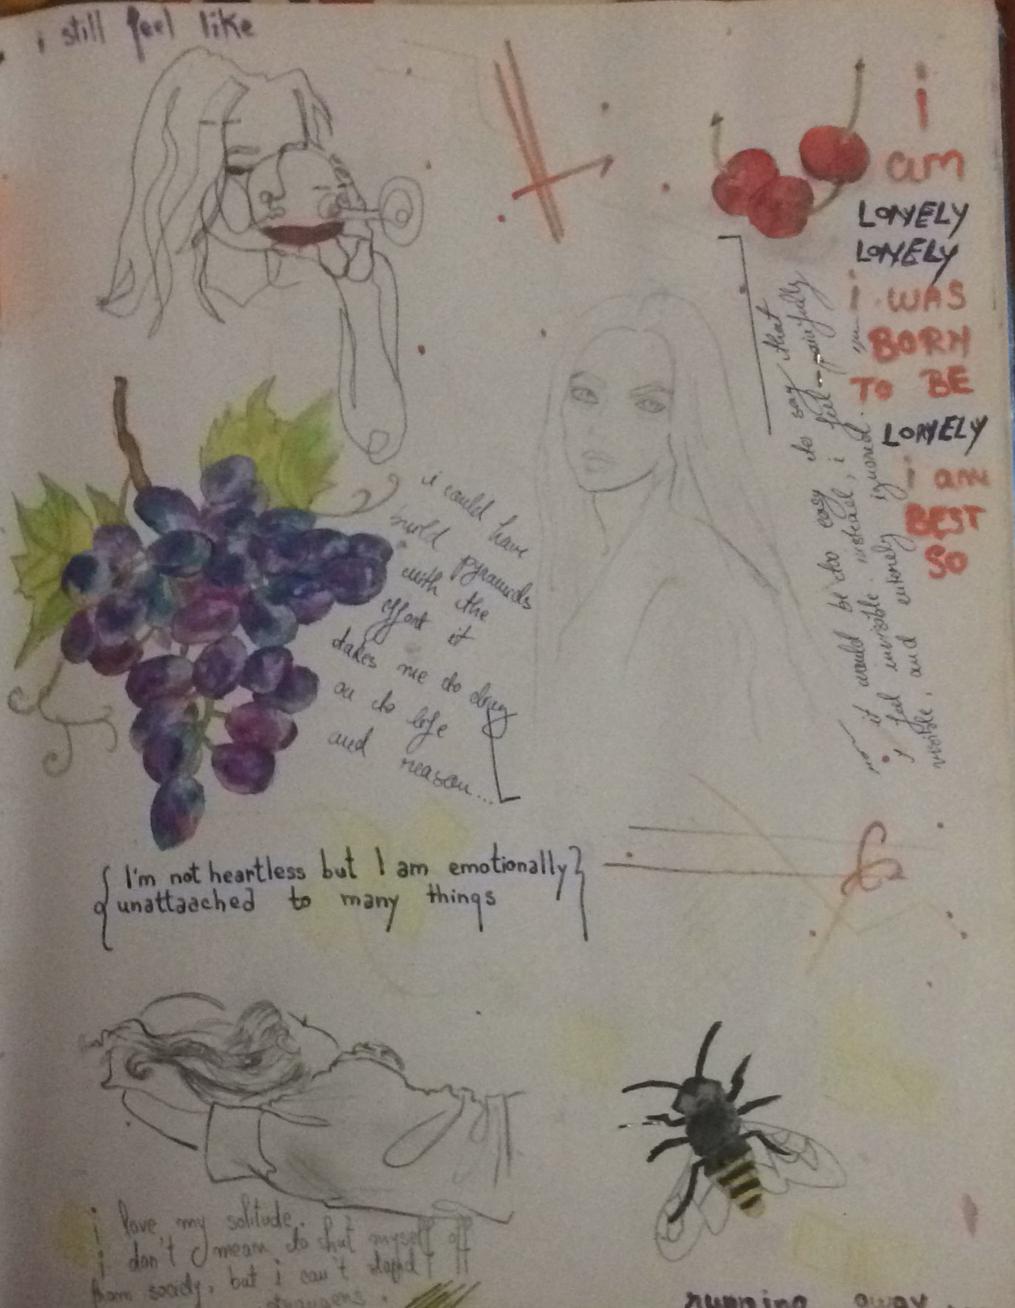 i still feel like
i
am
LONELY
LONELY
i WAS
BORN
TO BE
LONELY
i am
BEST
SO
it would be too easy to say that
i feel invisible. instead, i feel painfully
visible, and entirely ignored.
i could have
build pyramids
with the
effort it
takes me to cling
on to life
and reason...
{ I'm not heartless but I am emotionally }
unattaached to many things
i love my solitude.
i don't mean to shut myself off
from society, but i can't stand
strangers.
running away